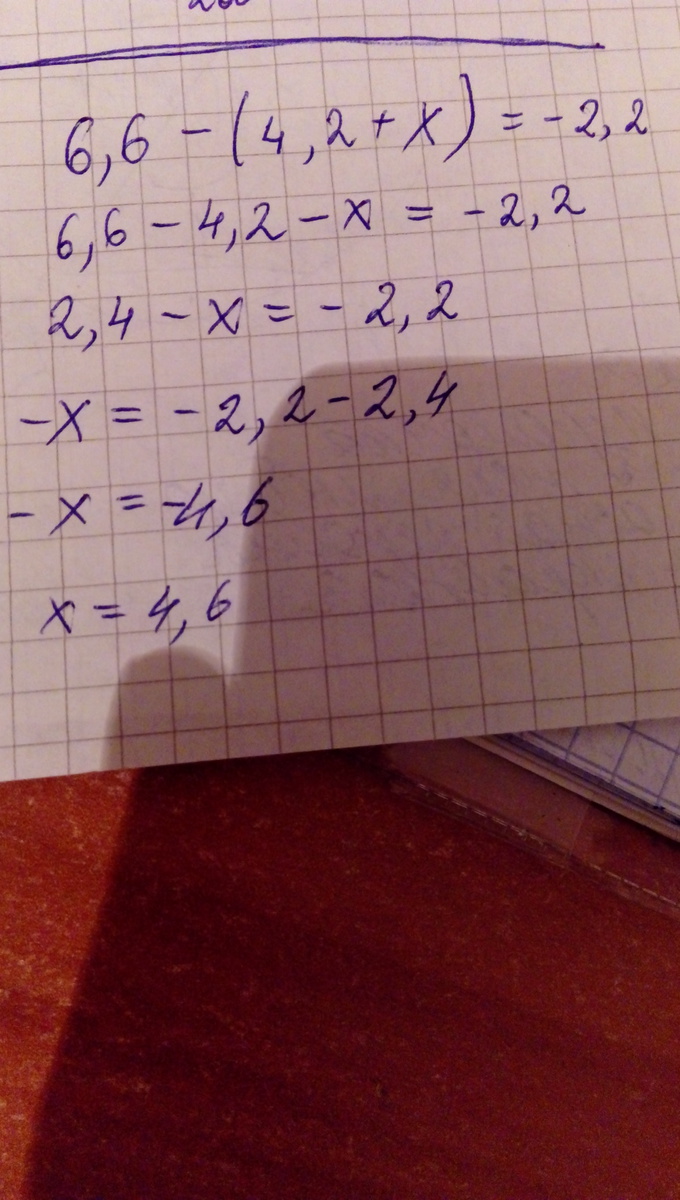 6,6 - (4,2 + x) = -2,2
6,6 - 4,2 - x = -2,2
2,4 - x = - 2,2
-x = -2,2 - 2,4
- x = -4,6
x = 4,6